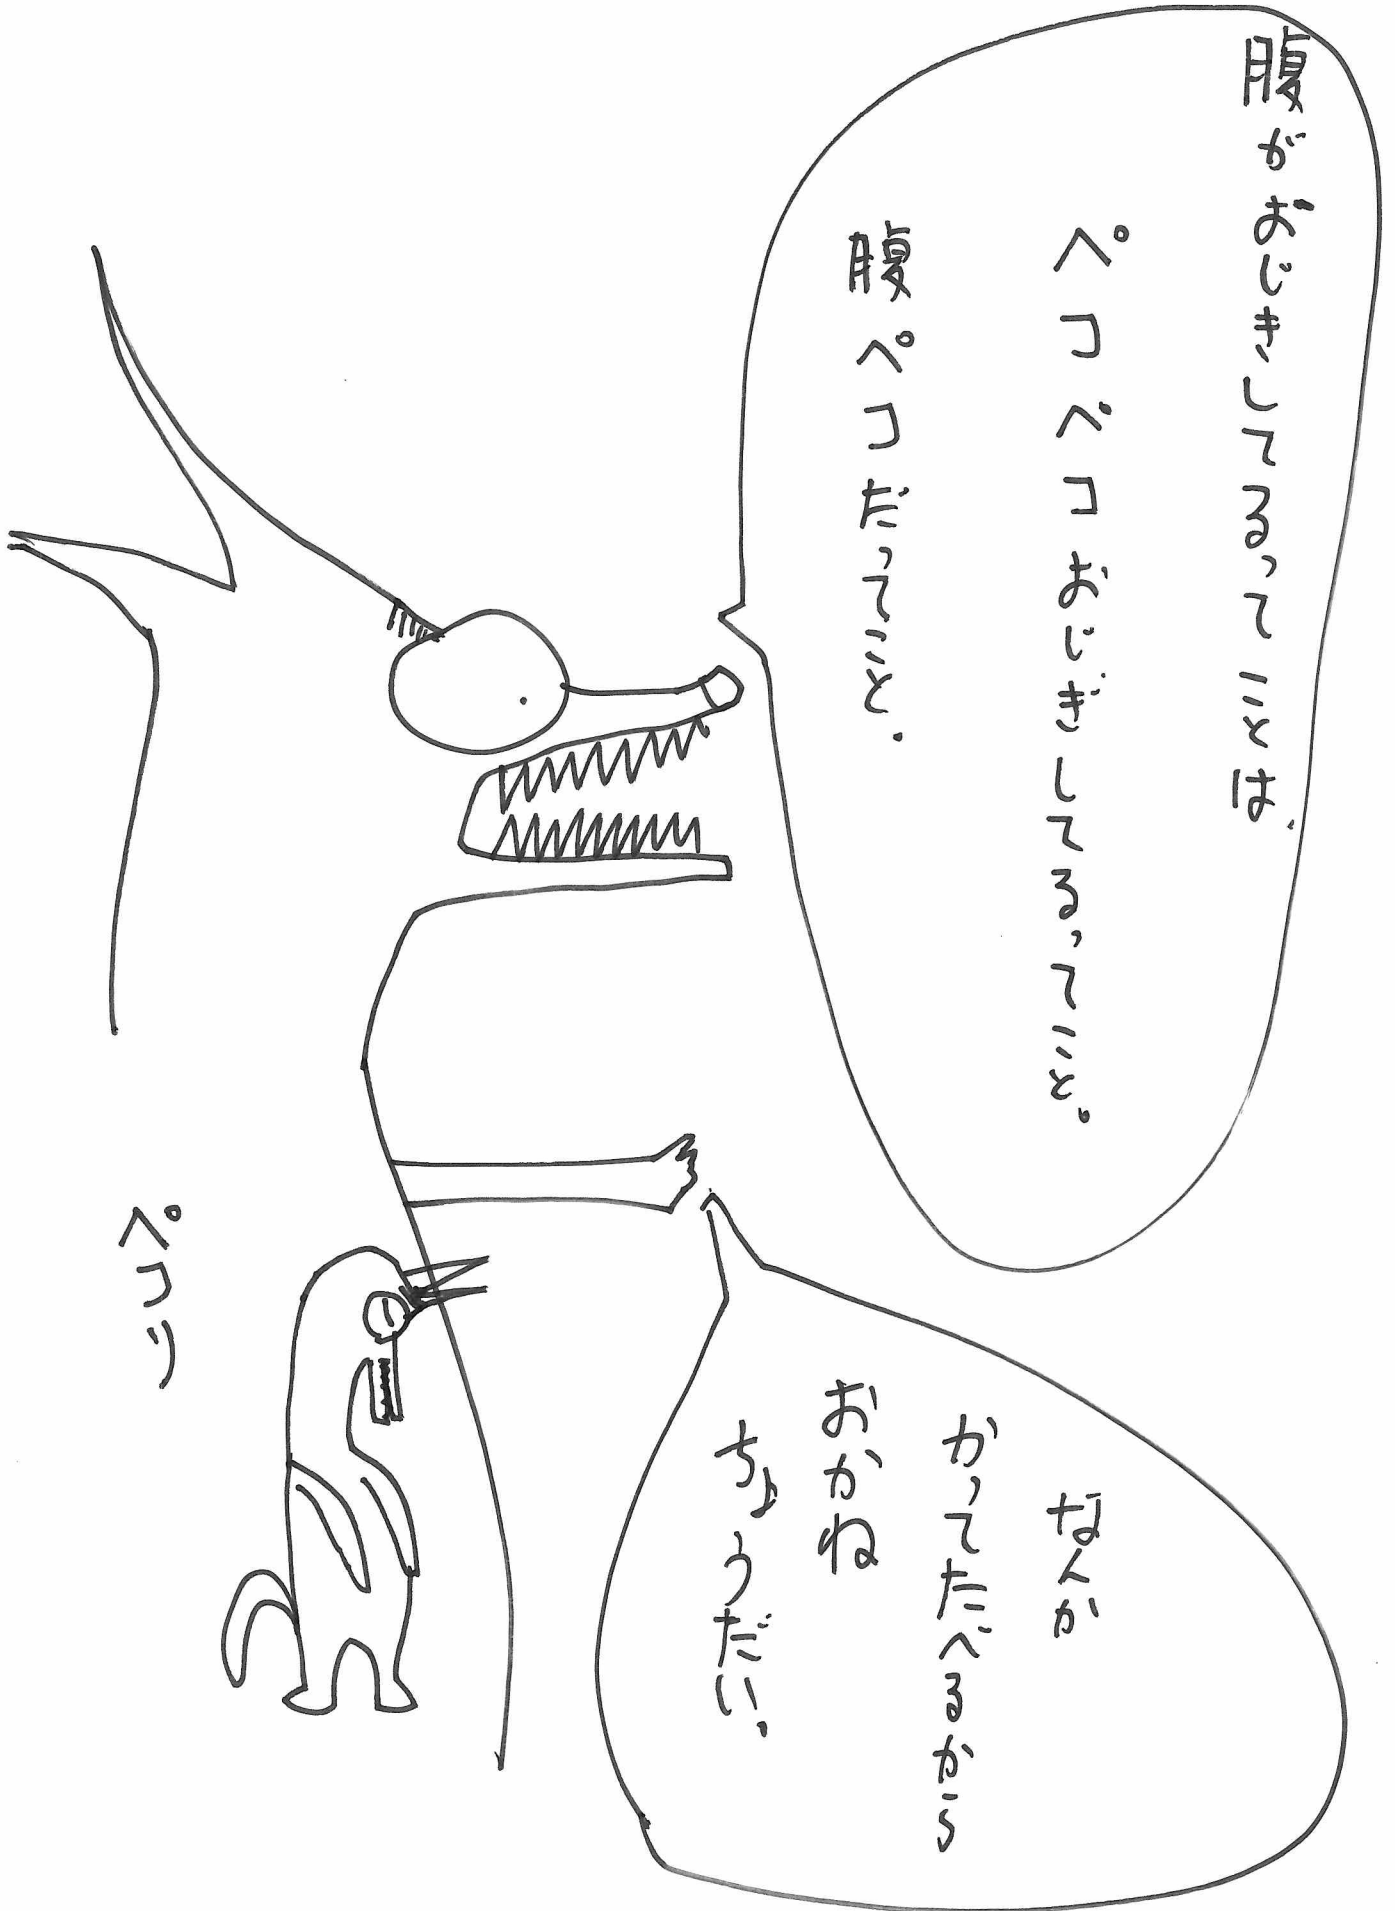 腹がおじきしてるってことは、
ペコペコおじぎしてるってこと。
腹ペコだってこと。
なんか
かってたべるから
おかね
ちょうだい。
ペコリ